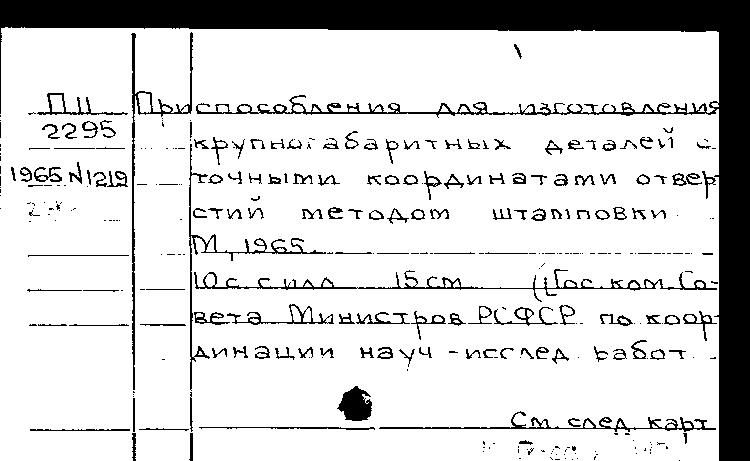 П II
2295
1965 N1219
Приспособления для изготовления
крупногабаритных деталей с
точными координатами отвер
стий методом штамповки.
М., 1965.
10 с. с илл. 15 см. ([Гос. ком. Со-
вета Министров РСФСР по коор
динации науч-исслед. работ.
См. след. карт